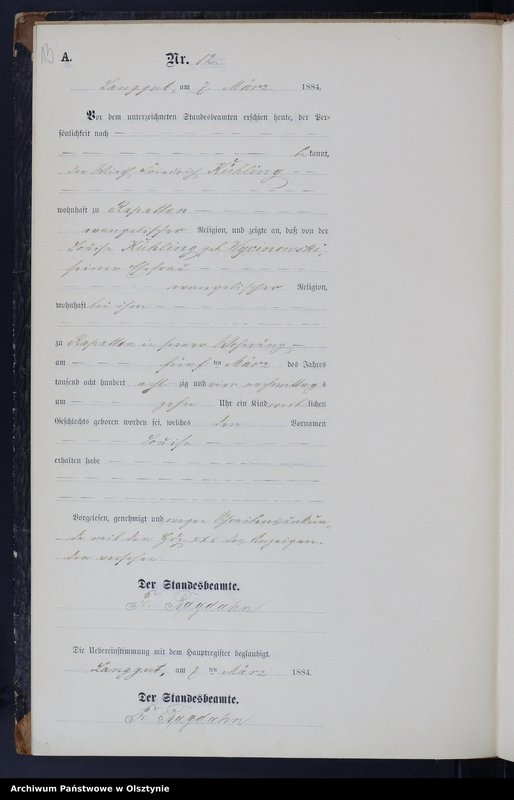 A. Nr. 12.
Langgut, am 7. März 1884.
Vor dem unterzeichneten Standesbeamten erschien heute, der Per-
sönlichkeit nach
bekannt,
der Friedrich Kühling
wohnhaft zu Rapatten
evangelischer Religion, und zeigte an, daß von der
Louise Kühling geb. Wycinowski,
seiner Ehefrau
evangelischer Religion,
wohnhaft bei ihm
zu Rapatten in seiner Wohnung
am fünften März des Jahres
tausend acht hundert achtzig und vier nachmittags
um zehn Uhr ein Kind weiblichen
Geschlechts geboren worden sei, welches den Vornamen
Louise
erhalten habe
Vorgelesen, genehmigt und wegen Schreibensunkun-
de mit den xxx des Anzeigen-
den versehen.
Der Standesbeamte.
Bagdahn
Die Uebereinstimmung mit dem Hauptregister beglaubigt.
Langgut, am 7ten März 1884.
Der Standesbeamte.
Bagdahn
Archiwum Państwowe w Olsztynie